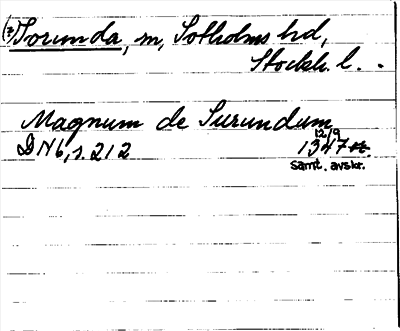 (?) Torunda, m, Sotholms hd,
Stockh. l.
Magnum de Turundum
12/9
DN 6, s. 212 1347 st.
samt. avskr.